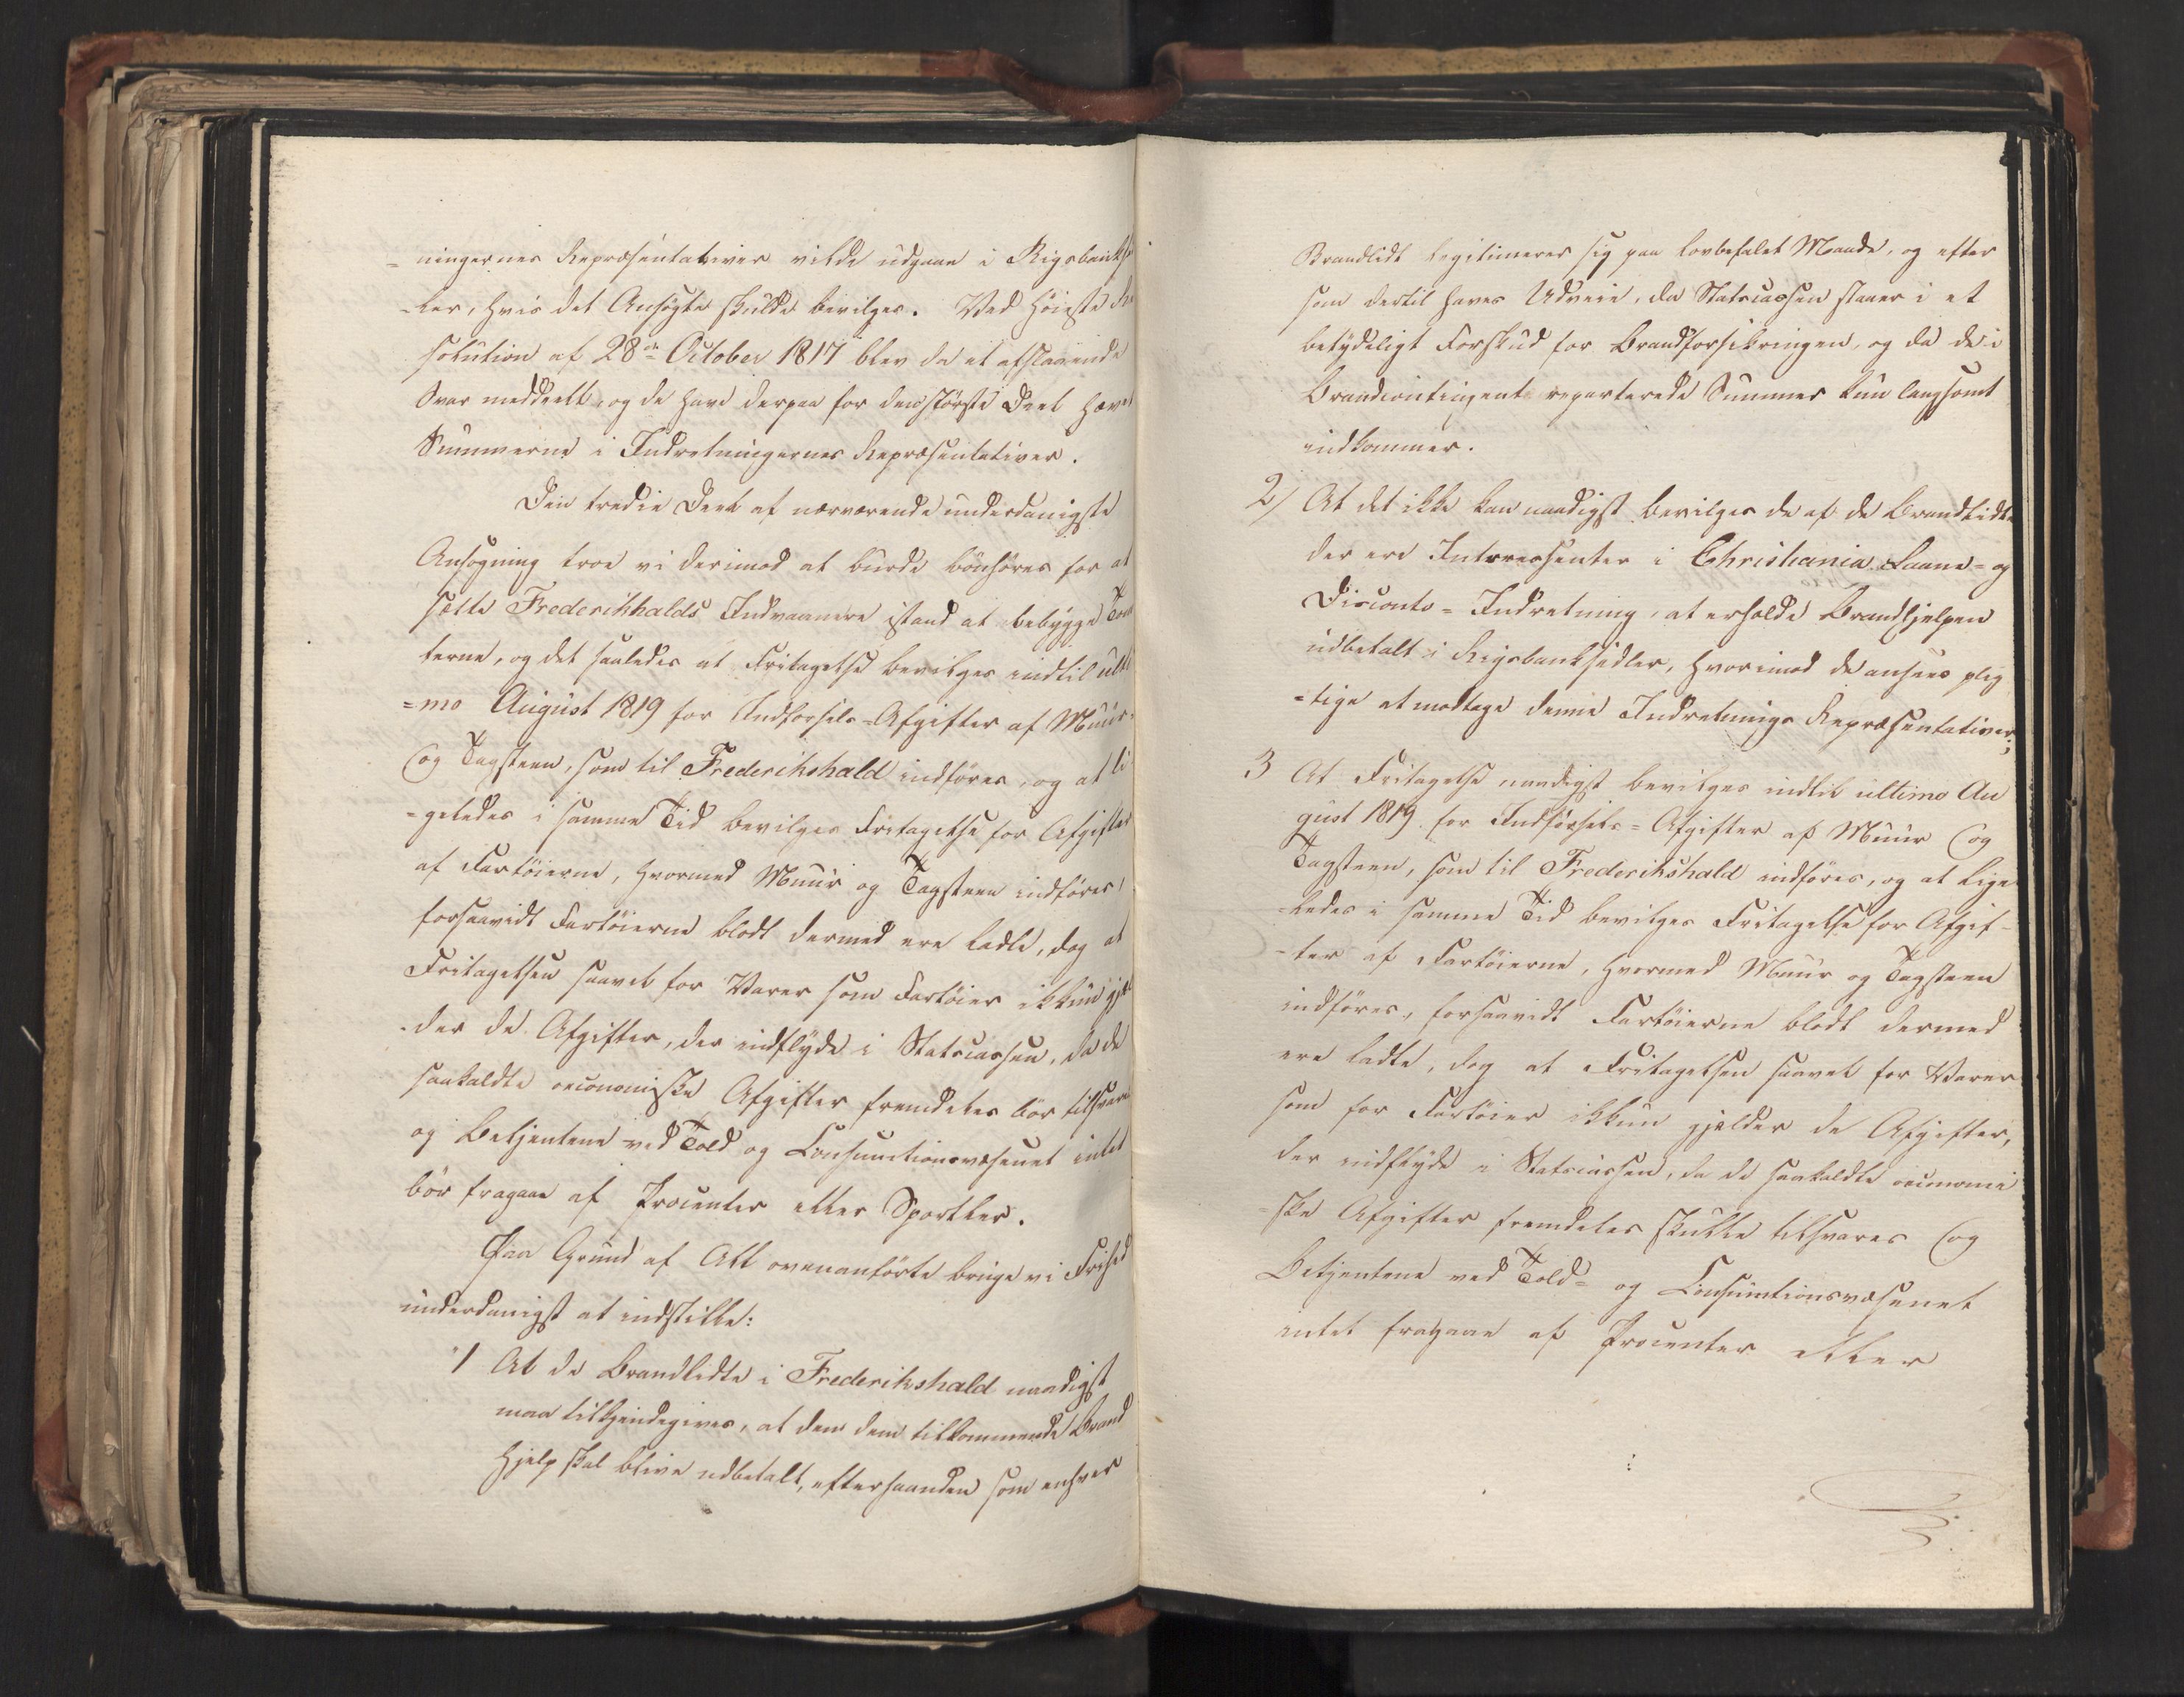 =ningernes Repræsentativer vilde udgaae i Rigsbankse
-ler, hvis det Ansøgte skulde bevilges. Ved Høieste Re
solution af 28de October 1817 blev da et afslaaende
Svar meddeelt, og de have derpaa for den største Deel hævet
Summerne i Indretningernes Repræsentativer.
Den tredie Deel af nærværende underdanigste
Ansøgning troe vi derimod at burde bønhøres for at
sætte Frederikhalds Indvaanere istand at bebygge Tom
terne, og det saaledes at Fritagelse bevilges indtil ulti
=mo August 1819 for Indførsels-Afgifter af Muur-
og Tagsteen, som til Frederikshald indføres, og at li
-geledes i samme Tid bevilges Fritagelse for Afgifter
af Fartøierne, hvormed Muur og Tagsteen indføres,
forsaavidt Fartøierne blodt dermed ere ladte, dog at
Fritagelsen saavel for Varer som Fartøier ikkun gjæl
-der de Afgifter, der indflyde i Statscassen, da de
saakaldte oeconomiske Afgifter fremdeles bør tilsvares
og Betjentene ved Told og Consumtionsvæsenet intet
bør fragaae af Procenter eller Sportler.
Paa Grund af Alt ovenanførte bruge vi Frihed
underdanigst at indstille:
1 At de Brandlidte i Frederikshald naadigst
maa tilkjendegives, at den dem tilkommende Brand
hjelp skal blive udbetalt, efterhaanden som enhver
Brandlidt legitimerer sig paa lovbefalet Maade, og efter
som dertil haves Udveie, da Statscassen staaer i et
betydeligt Forskud for Brandforsikringen, og da de i
Brandcontingent reparterede Summer kun langsomt
indkommer.
2/ At det ikke kan naadigst bevilges de af de Brandlidte
der ere Interessenter i Christiania Laane- og
Disconto-Indretning, at erholde Brandhjelpen
udbetalt i Rigsbanksedler, hvorimod de ansees plig
=tige at modtage denne Indretnings Repræsentativer;
3 At Fritagelse naadigst bevilges indtil ultimo Au
gust 1819 for Indførsels-Afgifter af Muur og
Tagsteen, som til Frederikshald indføres, og at lige
-ledes i samme Tid bevilges Fritagelse for Afgif-
-ter af Fartøierne, hvormed Muur og Tagsteen
indføres, forsaavidt Fartøierne blodt dermed
ere ladte, dog at Fritagelsen saavel for Varer
som for Fartøier ikkun gjelder de Afgifter,
der indflyde i Statscassen, da de saakaldte oeconomi
=ske Afgifter fremdeles skulle tilsvares og
Betjentene ved Told- og Consumtionsvæsenet
intet fragaae af Procenter eller